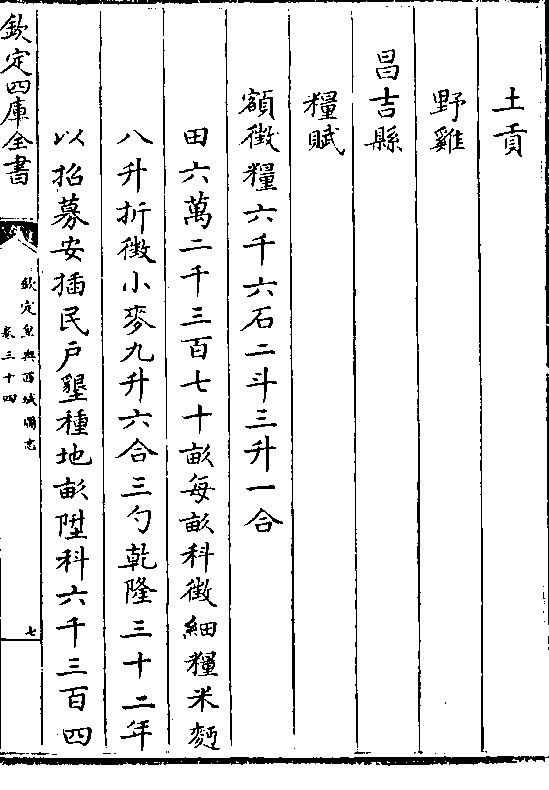 土貢
野雞
昌吉縣
糧賦
額徵糧六千六石二斗三升一合
田六萬二千三百七十畝每畝科徵細糧米麪
八升折徵小麥九升六合三勺乾隆三十二年
以招募安插民戶墾種地畝陞科六千三百四
欽定四庫全書
欽定皇輿西域圖志
卷三十四
七